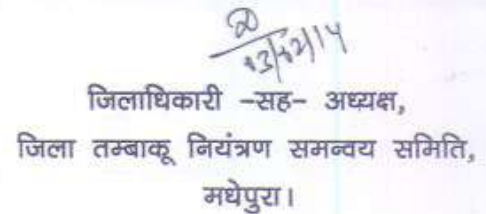 13/02/14
जिलाधिकारी -सह- अध्यक्ष,
जिला तम्बाकू नियंत्रण समन्वय समिति,
मधेपुरा।